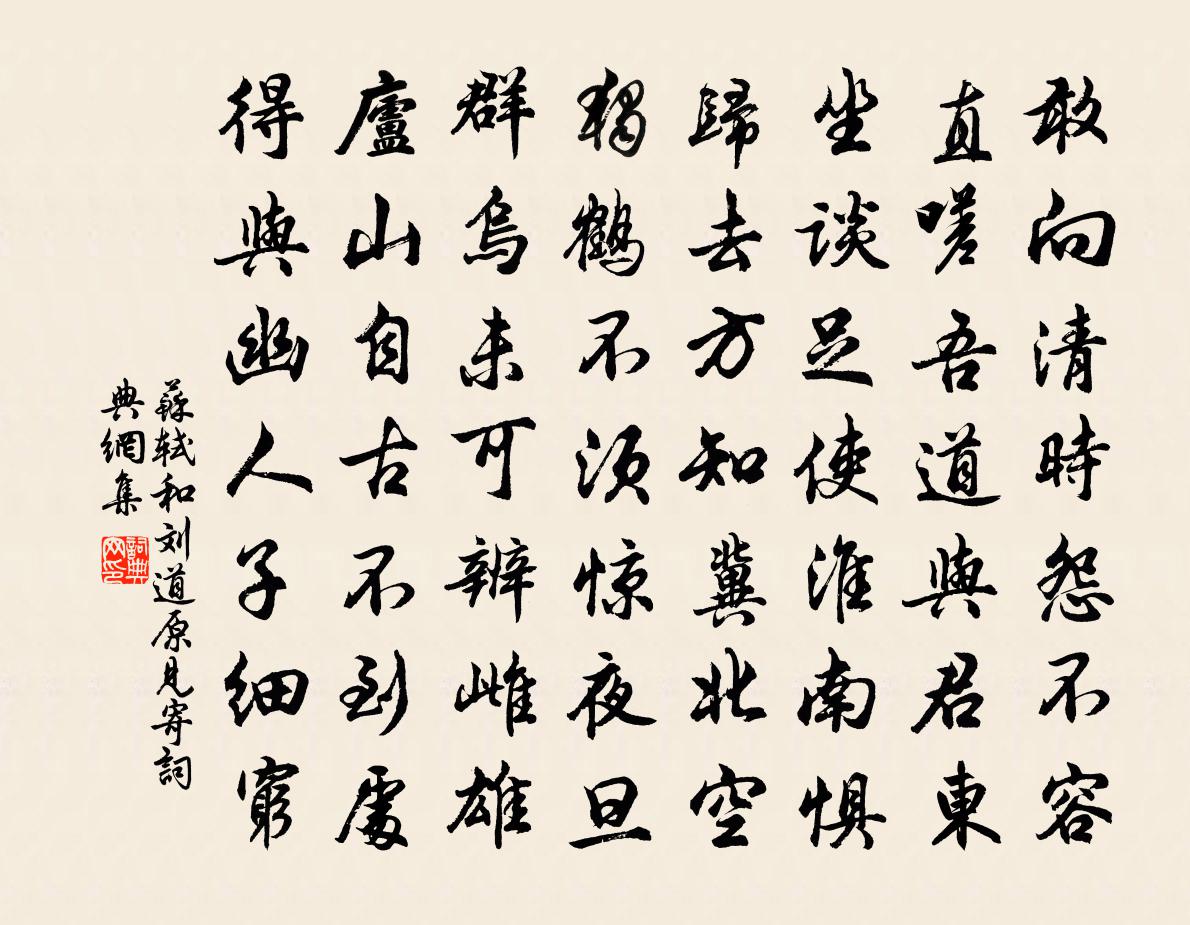 敢向清時怨不容
直嗟吾道與君東
坐談足使淮南懼
歸去方知冀北空
獨鶴不須惊夜旦
群烏未可辨雌雄
廬山自古不到處
得與幽人子細窮
蘇軾和刘道原見寄詞
典網集
詞典
网印